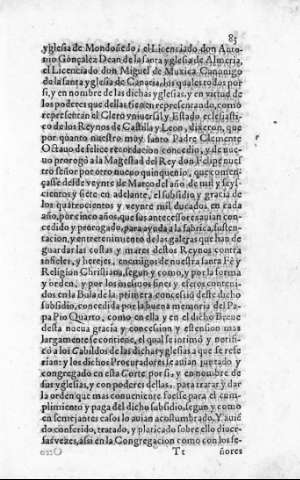 85
yglesia de Mondoñedo, el Licenciado don Anto-
nio Gonçalez Dean de la santa yglesia de Almeria,
el Licenciado don Miguel de Muxica Canonigo
de la santa yglesia de Canaria, los quales todos por
si, y en nombre de las dichas yglesias, y en virtud de
los poderes que dellas tienen representando, como
representan el Clero vniuersal y Estado ecclesiasti-
co de los Reynos de Castilla y Leon, dixeron, que
por quanto nuestro muy santo Padre Clemente
Octauo de felice recordacion concedio, y de nue-
uo prorogò a la Magestad del Rey don Felipe nues
tro señor por otro nueuo quinquenio, que comen-
çasse desde veynte de Março del año de mil y seys-
cientos y siete en adelante, el subsidio y gracia de
los quatrocientos y veynte mil ducados en cada
año, por cinco años, que sus antecessores auian con-
cedido y prorogado, para ayuda a la fabrica, susten-
tacion, y entretenimiento de las galeras que han de
guardar las costas y mares destos Reynos contra
infieles, y herejes, enemigos de nuestra santa Fè y
Religion Christiana, segun y como, y por la forma
y orden, y por los mesmos fines y efetos conteni-
dos en la Bula de la primera concessiō deste dicho
subsidio, concedida por la buena memoria del Pa-
pa Pio Quarto, como en ella y en el dicho Breue
desta nueua gracia y concession y estension mas
largamente se contiene, el qual se intimò y notifi-
cò a los Cabildos de las dichas yglesias a que se refe-
rian: y los dichos Procuradores se auian juntado y
congregado en esta Corte por si, y en nombre de
sus yglesias, y con poderes dellas, para tratar y dar
la orden que mas conueniente fuesse para el cum-
plimiento y paga del dicho subsidio, segun y como
en semejantes casos lo auian acostumbrado. Y auiē
do conferido, tratado, y platicado sobre ello diuer-
sas vezes, assi en la Congregacion como con los se-
Tt ñores